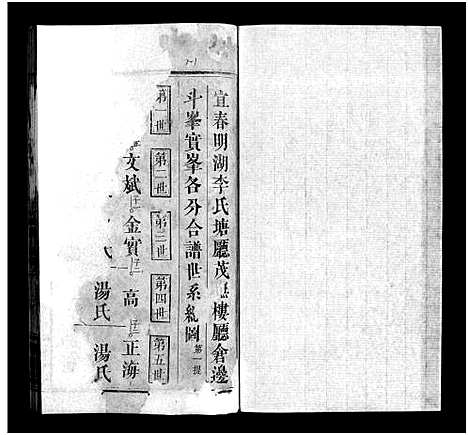 宜春明湖李氏塘廳茂 樓廳倉邊
斗峯實峯各分合譜世系總圖 第一提
第一世 第二世 第三世 第四世 第五世
文斌 金實 高 正海
氏 湯氏 湯氏